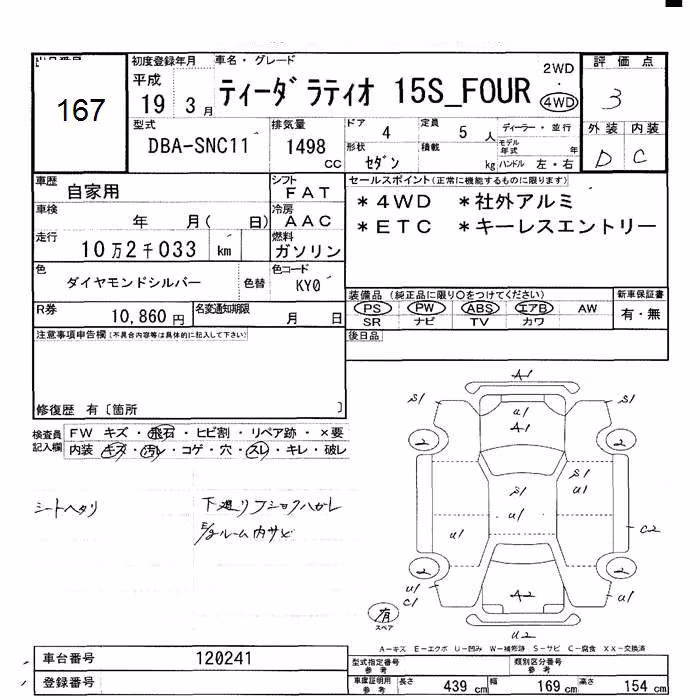 167
初度登録年月
平成
19 3月
車名・グレード
ティーダ ラティオ 15S_FOUR
2WD
・
4WD
評価点
3
外装 内装
D C
型式
DBA-SNC11
排気量
1498
cc
ドア 4
定員 5 人
ディーラー・並行
形状 セダン
積載 kg
モデル年式 年
ハンドル 左・右
車歴 自家用
シフト FAT
車検 年 月( 日)
冷房 AAC
走行 10万2千033 km
燃料 ガソリン
色 ダイヤモンドシルバー 色替
色コード KY0
R券 10,860円
名変通知期限 月 日
セールスポイント(正常に機能するものに限ります)
*4WD *社外アルミ
*ETC *キーレスエントリー
装備品(純正品に限り○をつけてください)
PS PW ABS エアB AW
SR ナビ TV カワ
新車保証書
有・無
後日品
注意事項申告欄(不具合内容等は具体的に記入して下さい)
修復歴 有〔箇所 〕
検査員記入欄
FW キズ・飛石・ヒビ割・リペア跡・×要
内装 キズ・汚レ・コゲ・穴・スレ・キレ・破レ
シートヘタリ
下廻りフショクハガレ
E/gルーム内サビ
A1
S1 S1
U1
A1
2 2
S1 S1
U1 U1
U1
C2
2 2
U1
C1
U1
A2
U2
有
スペア
A-キズ E-エクボ U-凹み W-補修跡 S-サビ C-腐食 XX-交換済
車台番号 120241
登録番号
型式指定番号
参考
類別区分番号
参考
車庫証明用
参考
長さ 439cm 幅 169cm 高さ 154cm